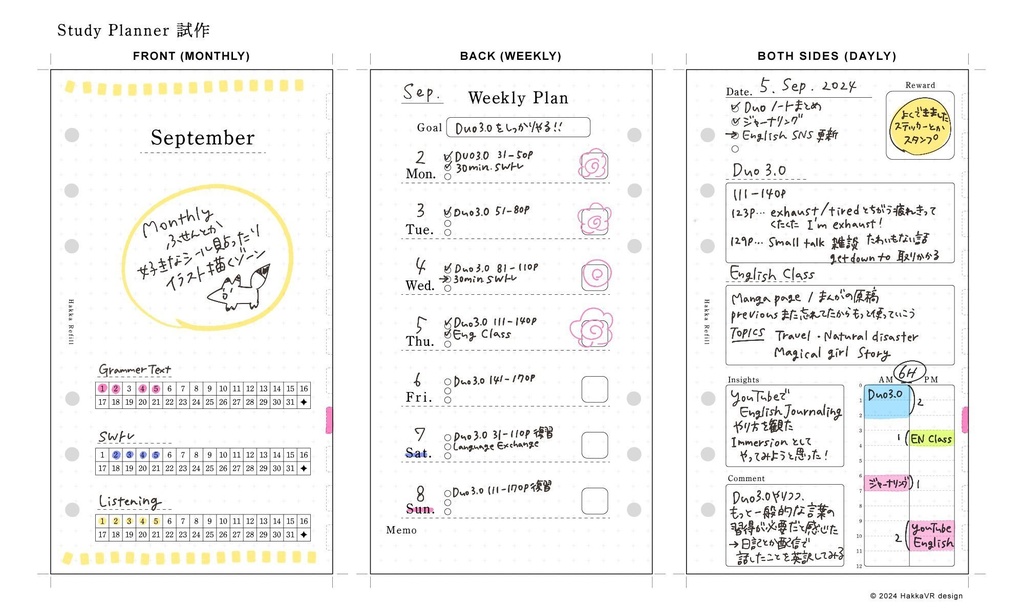 Study Planner 試作
FRONT (MONTHLY)
September
Monthly
ふせんとか
好きなシール貼ったり
イラスト描くゾーン
Hakka Refill
Grammer Text
1 2 3 4 5 6 7 8 9 10 11 12 13 14 15 16
17 18 19 20 21 22 23 24 25 26 27 28 29 30 31 ✦
SWトレ
1 2 3 4 5 6 7 8 9 10 11 12 13 14 15 16
17 18 19 20 21 22 23 24 25 26 27 28 29 30 31 ✦
Listening
1 2 3 4 5 6 7 8 9 10 11 12 13 14 15 16
17 18 19 20 21 22 23 24 25 26 27 28 29 30 31 ✦
BACK (WEEKLY)
Sep.
Weekly Plan
Goal
Duo3.0をしっかりやる!!
2 Mon.
DUO3.0 31-50P
30min. SWトレ
3 Tue.
Duo3.0 51-80P
4 Wed.
Duo3.0 81-110P
30min SWトレ
5 Thu.
Duo3.0 111-140P
Eng Class
6 Fri.
Duo3.0 141-170P
7 Sat.
Duo3.0 31-110P 復習
Language Exchange
8 Sun.
Duo3.0 111-170P 復習
Memo
BOTH SIDES (DAYLY)
Date. 5. Sep. 2024
Duo ノートまとめ
ジャーナリング
→ English SNS 更新
Reward
よくできました
ステッカーとか
スタンプ
Duo 3.0
111-140P
123P… exhaust/tiredとちがう疲れきって
くたくた I'm exhaust!
129P… Small talk 雑談 たわいもない話
get down to 取りかかる
English Class
Manga page / まんがの原稿
previous また忘れてたからもっと使っていこう
Topics Travel・Natural disaster
Magical girl Story
Hakka Refill
Insights
YouTubeで
English Journaling
やり方を観た
Immersionとして
やってみようと思った!
Comment
Duo3.0やりつつ、
もっと一般的な言葉の
習得が必要だと感じた
→日記とか配信で
話したことを英訳してみる
AM 6H PM
0
1
2
3
4
5
6
7
8
9
10
11
12
Duo3.0
2
1 EN Class
ジャーナリング 1
2 YouTube
English
© 2024 HakkaVR design